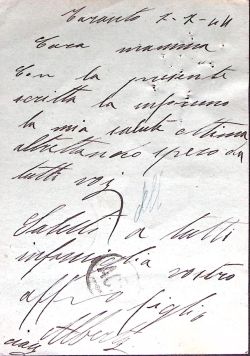 Taranto 2-2-44
Cara mamma
Con la presente
scritta la informo
la mia salute ottima
altrettando spero da
tutti voi
a tutti
infamiglia vostro
aff.mo figlio
ciao Alberto